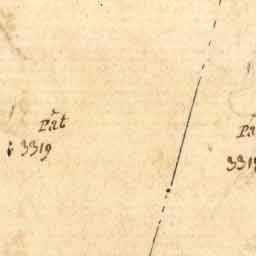 Pat
3319
Pa
331